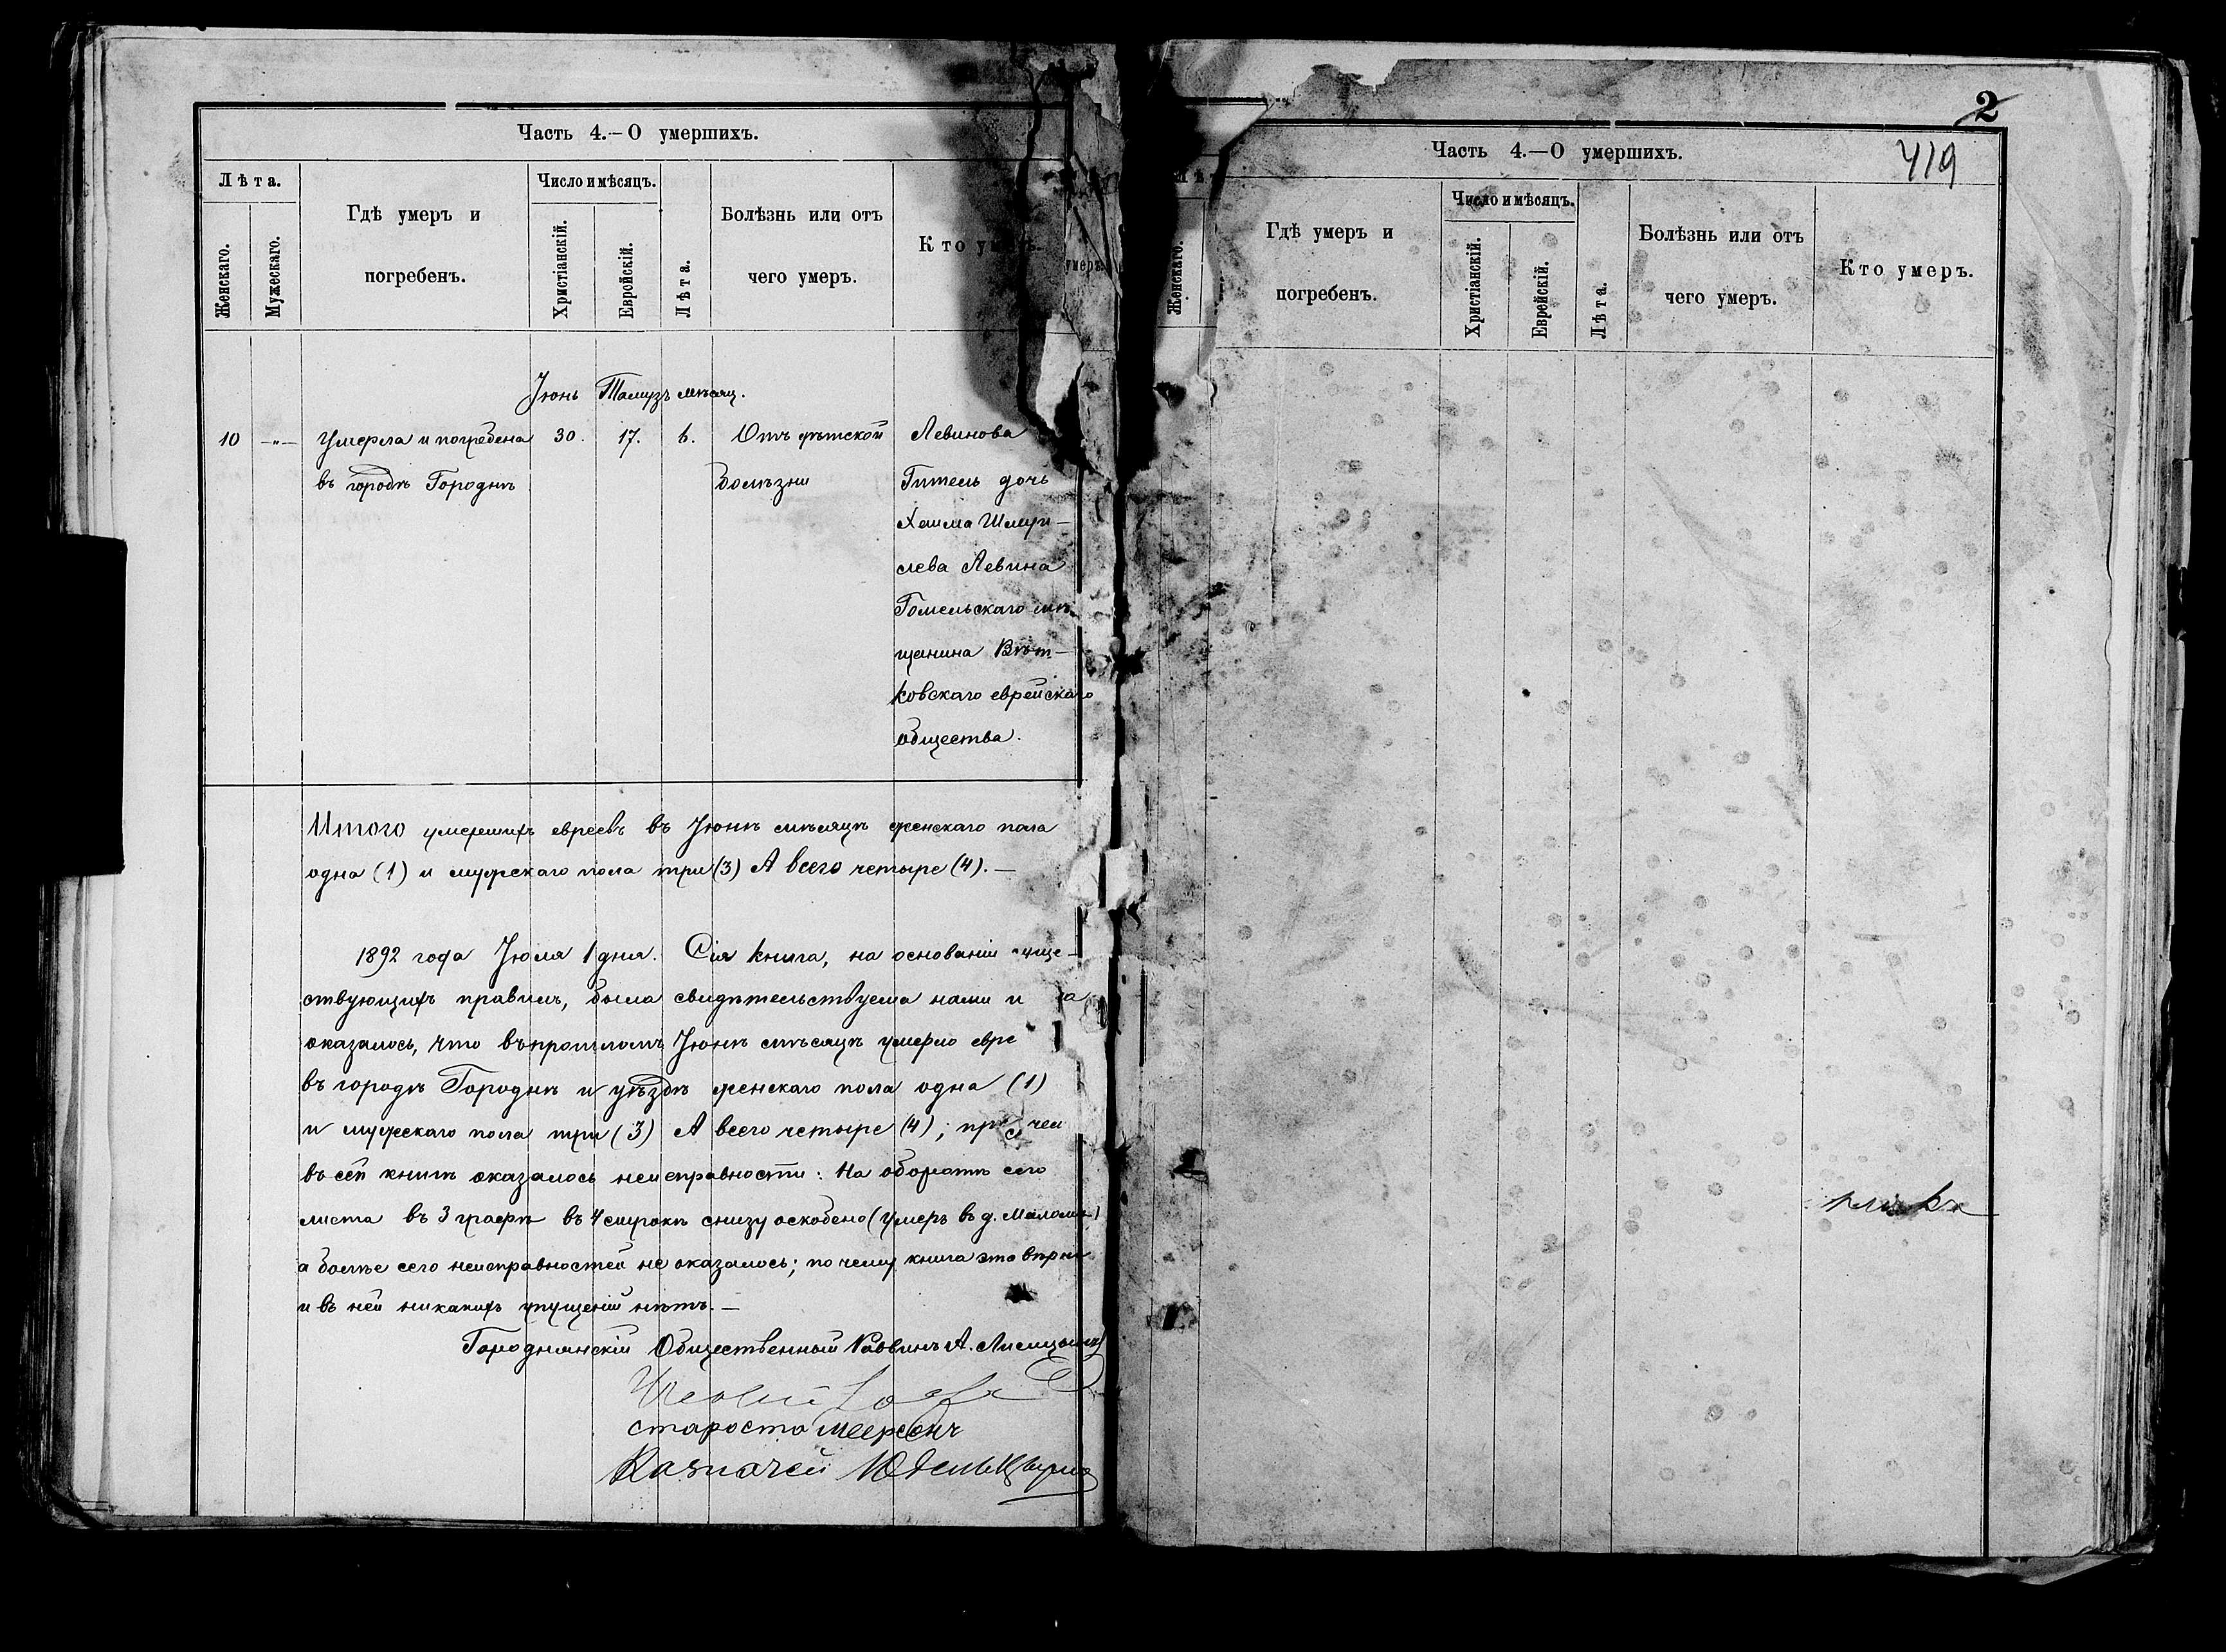 Часть 4.—О умершихъ.
Лѣта.
Женскаго.
Мужескаго.
Гдѣ умеръ и
погребенъ.
Число и мѣсяцъ.
Христіанскій.
Еврейскій.
Лѣта.
Болѣзнь или отъ
чего умеръ.
Кто умеръ.
Іюнь Тамузъ мѣсяц.
10 —"— Умерла и погребена 30. 17. 6. Отъ дѣтской Левинова
въ городѣ Городнѣ болѣзни Гитель дочь
Хаима Шмуи-
лева Левина
Гомельскаго мѣ-
щанина Вѣт-
ковскаго еврейскаго
общества.
Итого умершихъ евреевъ въ Іюнѣ мѣсяцѣ женскаго пола
одна (1) и мужскаго пола три (3) А всего четыре (4). —
1892 года Іюля 1 дня. Сія книга, на основаніи
ствующихъ правилъ, была свидѣтельствуема нами и
оказалось, что въ прошломъ Іюнѣ мѣсяцѣ умерло евре
въ городѣ Городнѣ и уѣздѣ женскаго пола одна (1)
и мужскаго пола три (3) А всего четыре (4); при чем
въ сей книгѣ оказалось неисправности: На оборотѣ сего
листа въ 3 графѣ въ 4 строкѣ снизу оскоблено (умеръ въ д.
а болѣе сего неисправностей не оказалось; по чему книга эта вѣрна
и въ ней никакихъ упущеній нѣтъ. —
Городнянскій Общественный Раввинъ А. Лисицынъ
староста Меерсонъ
Казначей
2
419
Часть 4.—О умершихъ.
Женскаго.
Гдѣ умеръ и
погребенъ.
Число и мѣсяцъ.
Христіанскій.
Еврейскій.
Лѣта.
Болѣзнь или отъ
чего умеръ.
Кто умеръ.